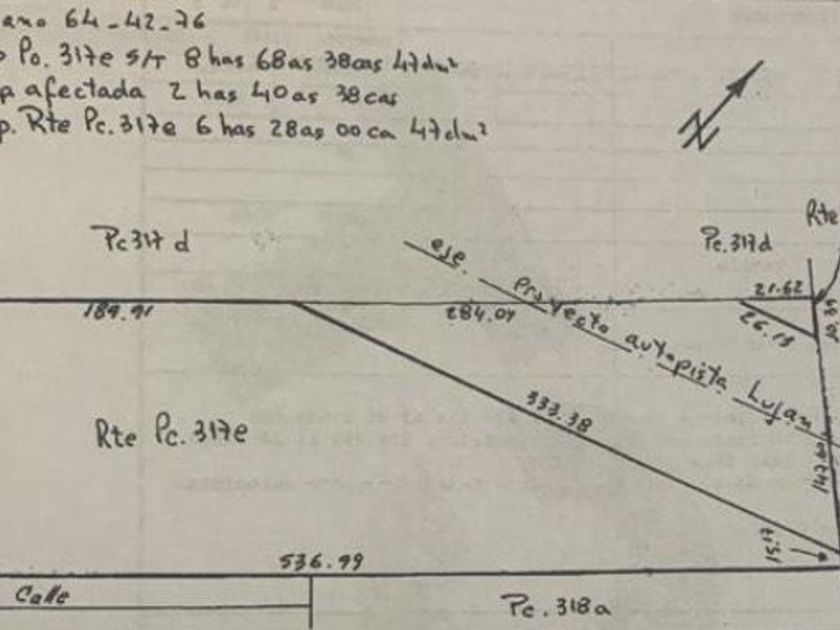 ano 64-42-76
Po. 317e s/T 8 has 68as 38cas 47dm²
p afectada 2 has 40as 38cas
p. Rte Pc. 317e 6 has 28as 00ca 47dm²
Rte
Pc 317 d
Pc. 317d
eje. Proyecto autopista Lujan
21.62
189.91
284.04
26.13
333.38
Rte Pc. 317e
15.17
536.99
Calle
Pc. 318a